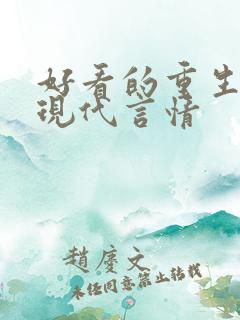 好看的重生
現代言情
趙慶文
未經同意禁止轉載